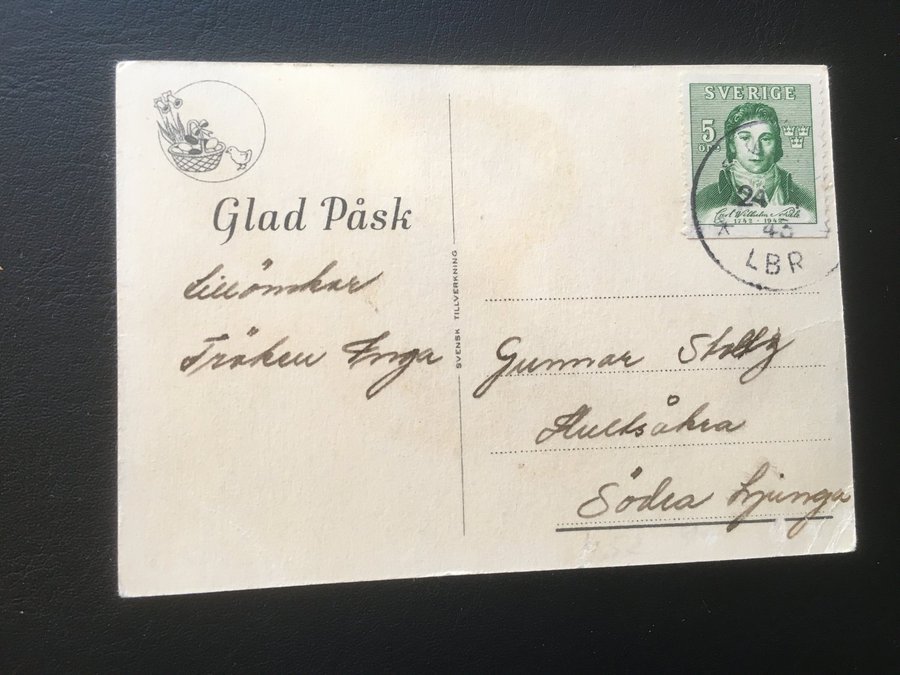 Glad Påsk
Tillönskar
Fröken Inga
SVENSK TILLVERKNING
SVERIGE
5
ÖRE
1742 · 1942
24
* 43
LBR
Gunnar Stoltz
Hultsåkra
Södra Ljunga